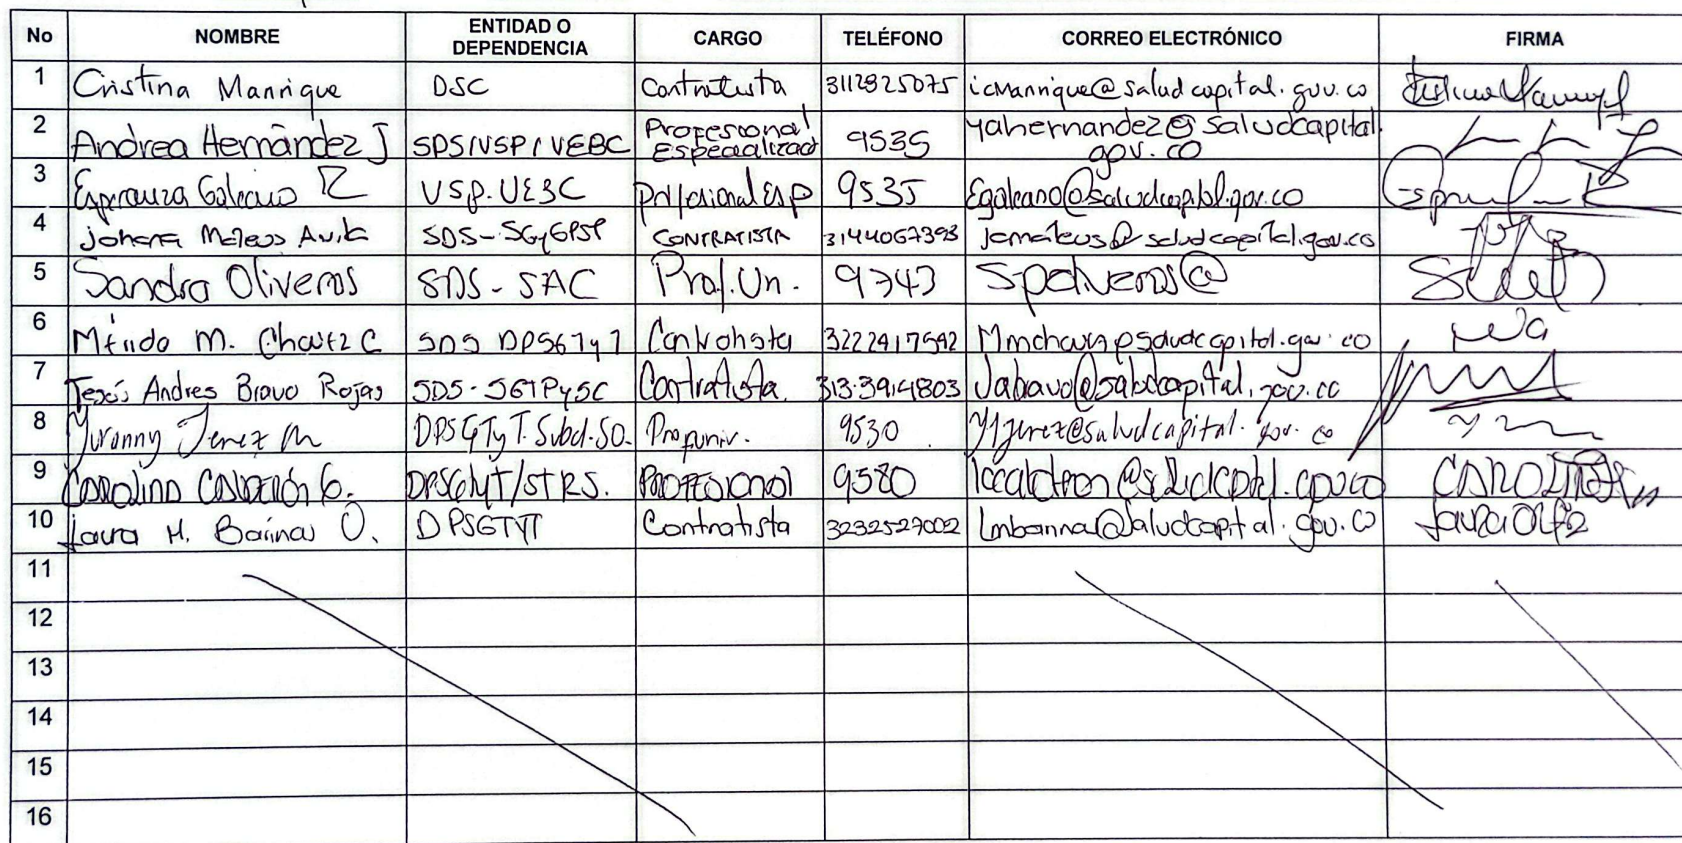 No NOMBRE ENTIDAD O DEPENDENCIA CARGO TELÉFONO CORREO ELECTRÓNICO FIRMA
1 Cristina Manrique DSC Contratista 3112825075 icmanrique@saludcapital.gov.co
2 Andrea Hernández J SPS/VSP/VEBC Profesional Especializado 9535 yahernandez@saludcapital.gov.co
3 Esperanza Galeano R VSP.VEBC Profesional Esp 9535 Egaleano@saludcapital.gov.co
4 Johana Mateus Avila SDS-SGyGPSP CONTRATISTA 3144067393 jamateus@saludcapital.gov.co
5 Sandra Oliveros SDS-SAC Prof.Un. 9743 Spoliveros@
6 M. Chavez C SDS Contratista 3222417542
7 Jesús Andres Bravo Rojas SDS-SGTPySC Contratista 313 3914803 Jabravo@saludcapital.gov.co
8 Jerez M DPSGTyT. Subd.SO. Prof univ. 9530 Yljerez@saludcapital.gov.co
9 CAROLINA CALDERÓN G. DPSGTyT/STRS. PROFESIONAL 9580 CAROLINA
10 Laura M. Barinas O. DPSGTYT Contratista 3232527002 lmbarinas@saludcapital.gov.co
11
12
13
14
15
16